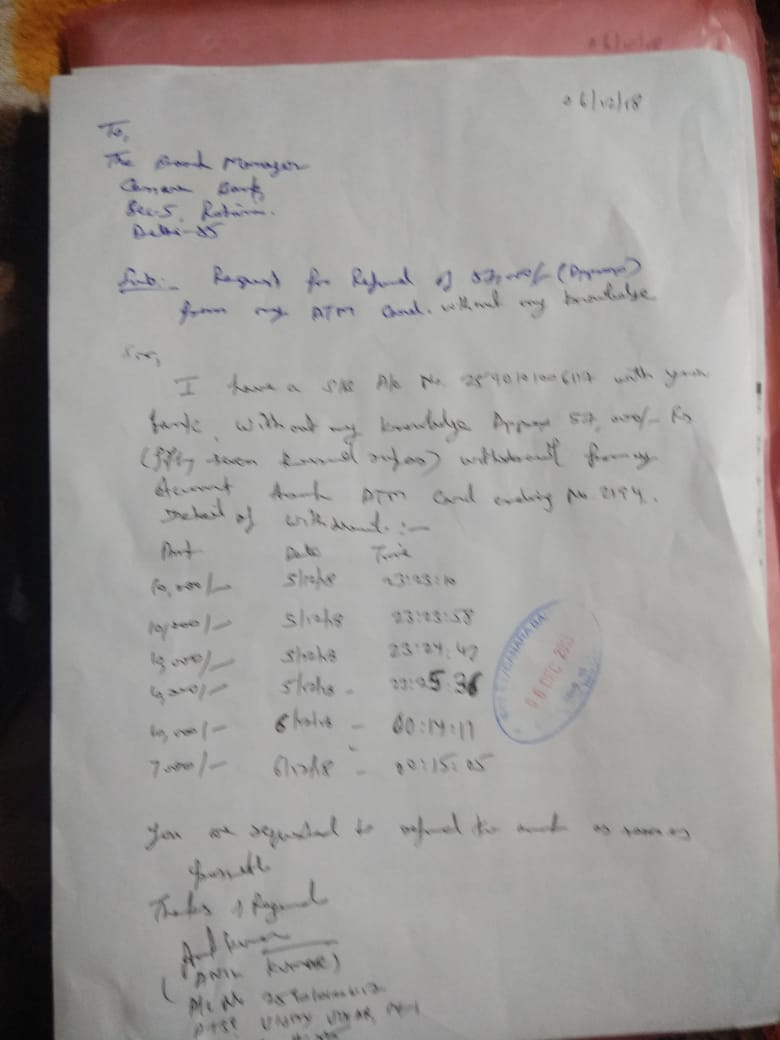 06/12/18
To,
The Branch Manager
Canara Bank,
Sec-5, Rohini.
Delhi-85
Sub:- Request for Refund of 57,000/- (Approx)
from my ATM Card. without my knowledge
Sir,
I have a S/B A/c No. with your
bank, without my knowledge Approx 57,000/- Rs
(fifty seven thousand rupees) withdrawl from my
Account ATM Card ending No. 2194.
Detail of withdrawl :-
Amt Date Time
10,000/- 5/12/18 23:23:10
10,000/- 5/12/18 23:23:58
10,000/- 5/12/18 23:24:47
5/12/18 - 23:25:36
10,000/- 6/12/18 - 00:14:17
7000/- 6/12/18 - 00:15:05
CANARA BA
06 DEC
You are requested to refund the as soon as
possible
Thanks & Regard
Anil Kumar
(ANIL KUMAR)
A/c No